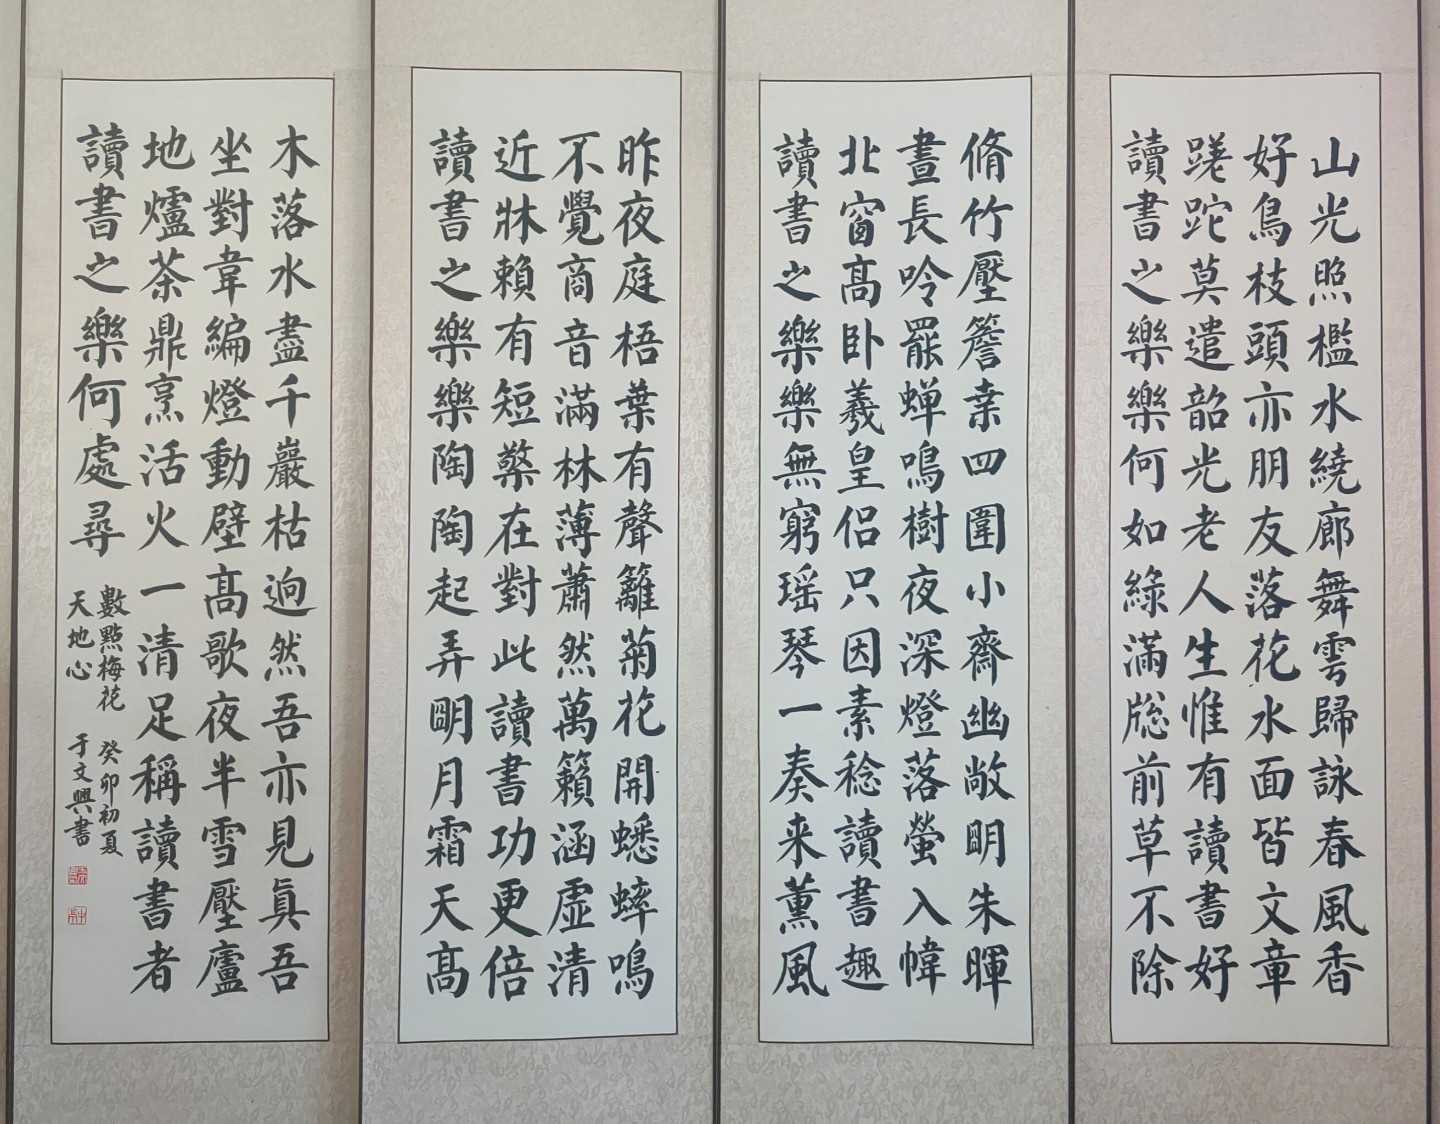 山光照檻水繞廊舞雩歸詠春風香
好鳥枝頭亦朋友落花水面皆文章
蹉跎莫遣韶光老人生惟有讀書好
讀書之樂樂何如綠滿牕前草不除
脩竹壓簷桒四圍小齋幽敞明朱暉
晝長吟罷蝉鳴樹夜深燈落螢入幃
北窗高卧羲皇侣只因素稔讀書趣
讀書之樂樂無窮瑶琴一奏来薰風
昨夜庭梧葉有聲籬菊花開蟋蟀鳴
不覺商音滿林薄蕭然萬籟涵虛清
近牀賴有短檠在對此讀書功更倍
讀書之樂樂陶陶起弄明月霜天高
木落水盡千巖枯迥然吾亦見真吾
坐對韋編燈動壁高歌夜半雪壓廬
地爐茶鼎烹活火一清足稱讀書者
讀書之樂何處尋
數點梅花
天地心
癸卯初夏
于文興書